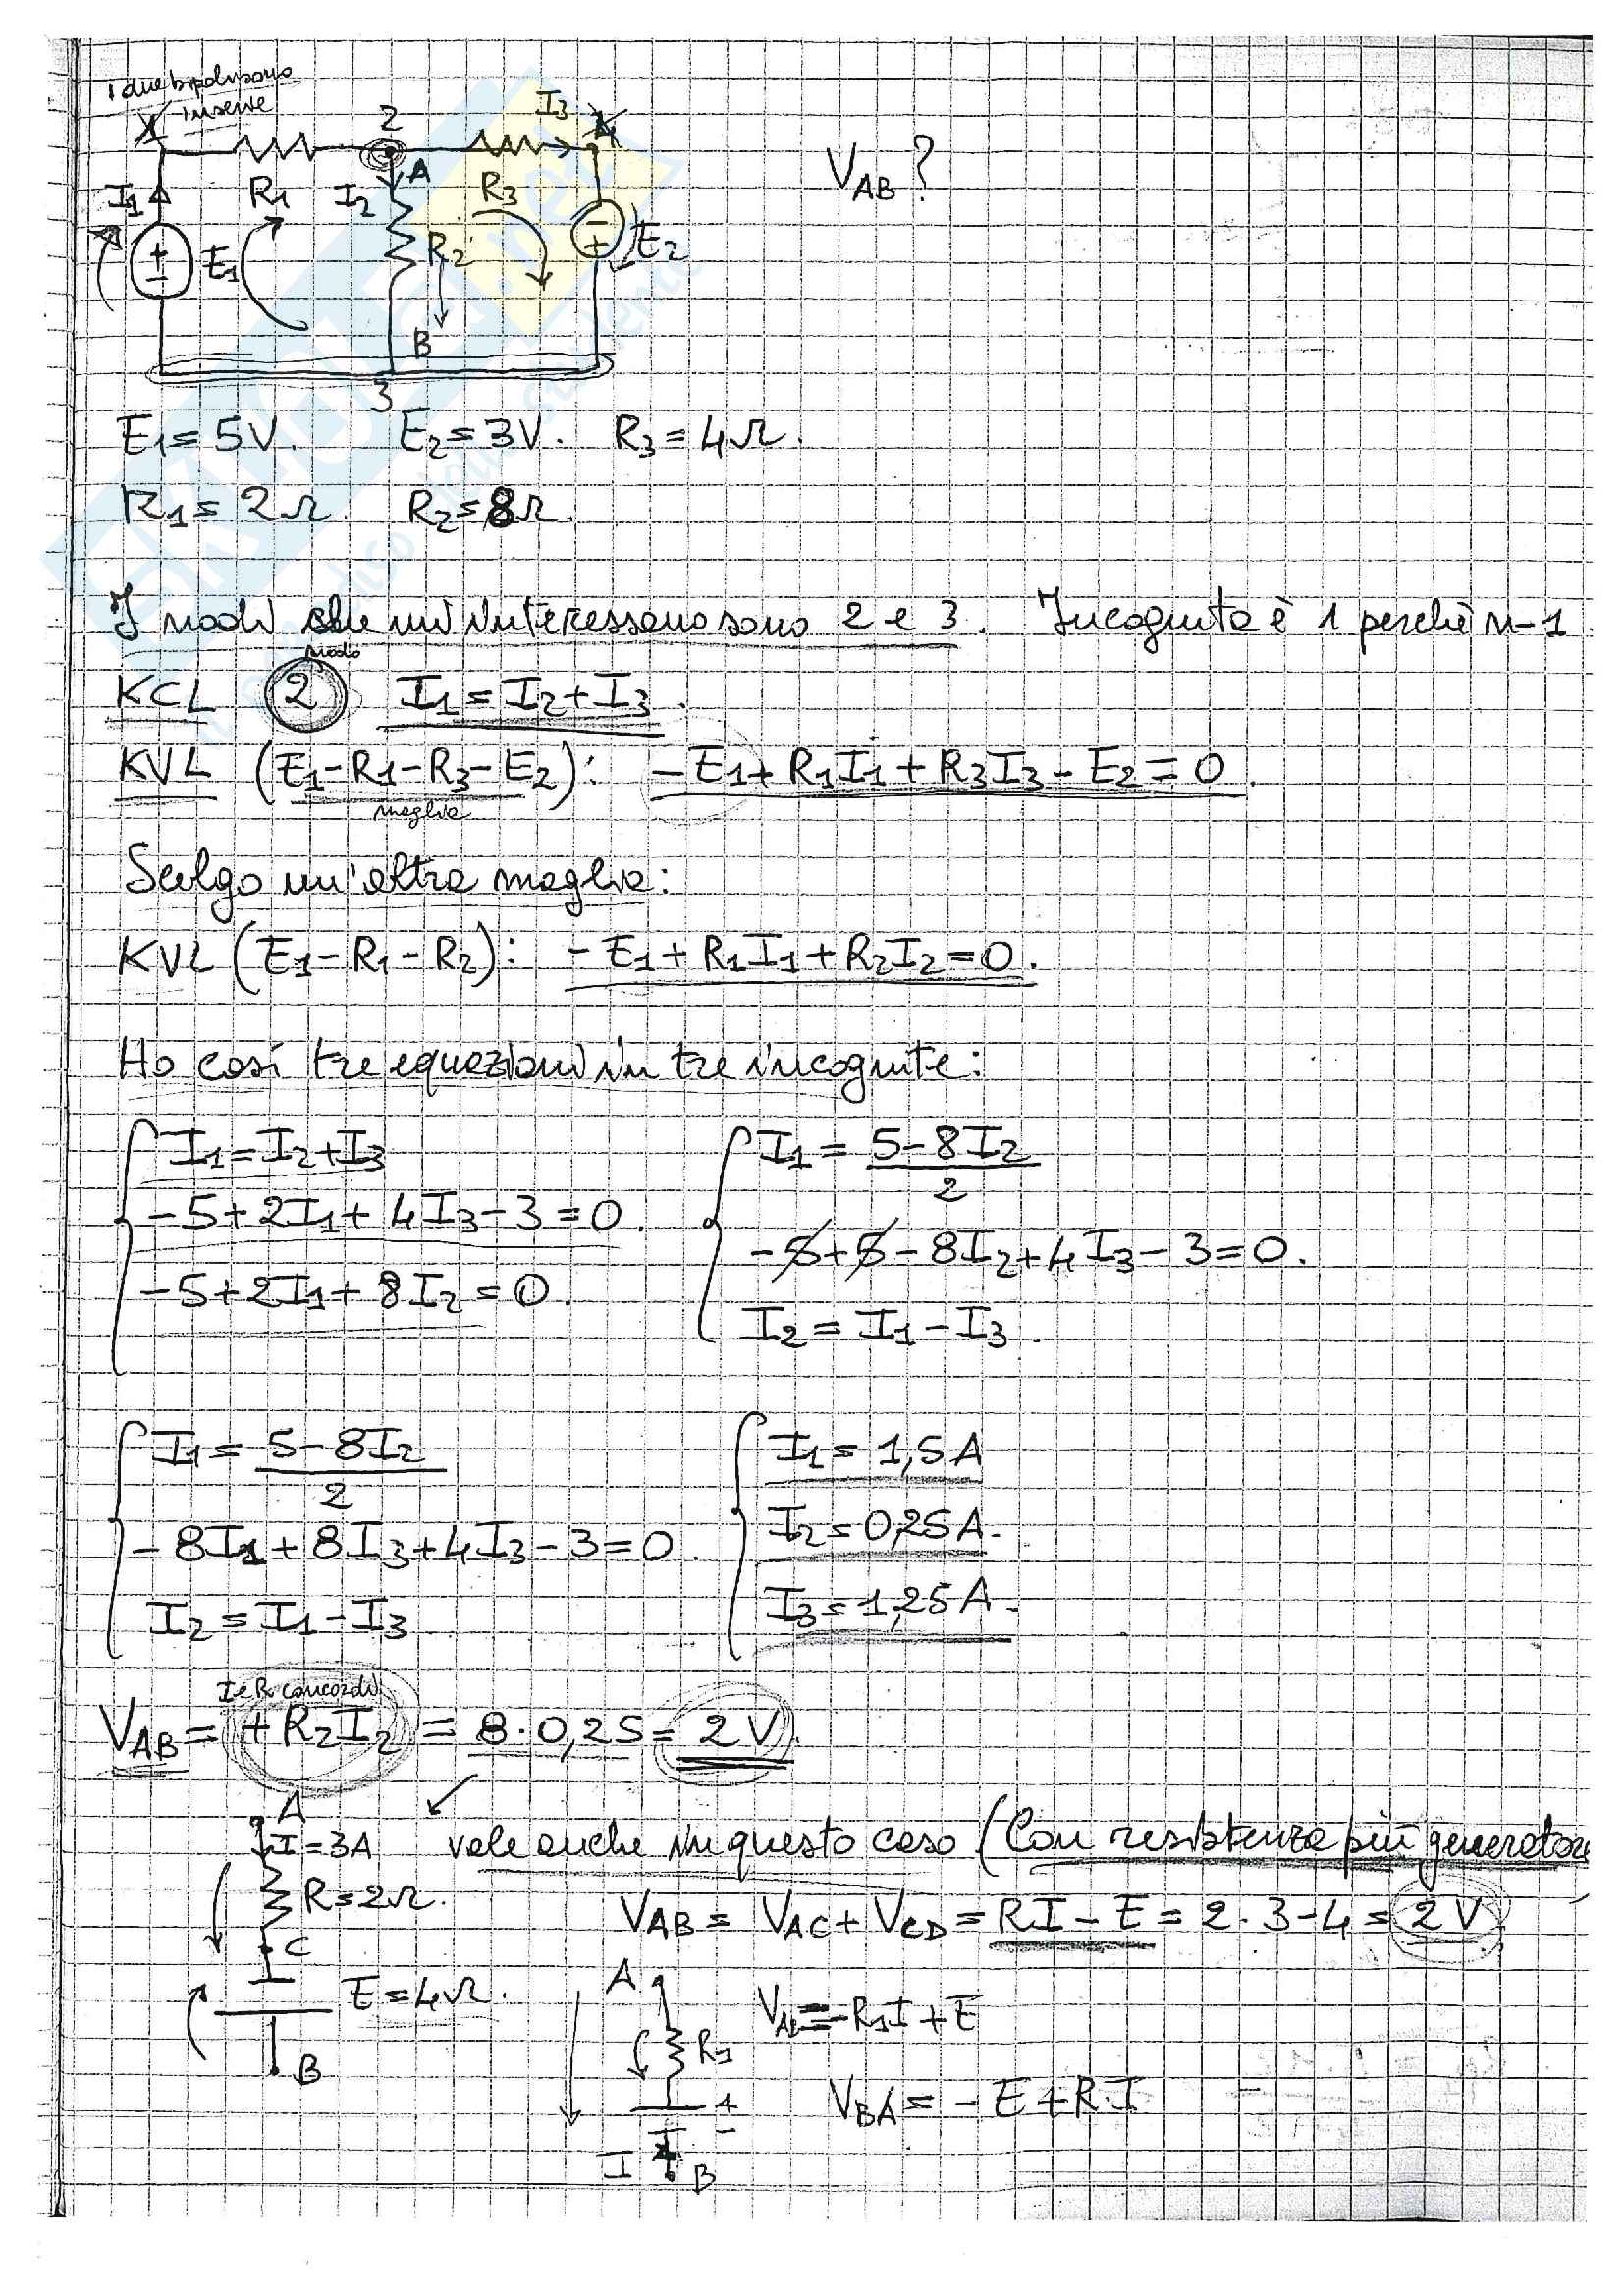 i due bipoli sono
in serie
1
2
I3
4
A
I1
R1
I2
R3
VAB?
+
-
E1
R2
-
+
E2
B
3
E1=5V. E2=3V. R3=4Ω.
R1=2Ω. R2=8Ω.
I nodi che mi interessano sono 2 e 3. Incognita è 1 perchè n-1
nodo
KCL 2 I1=I2+I3.
KVL (E1-R1-R3-E2): -E1+R1I1+R3I3-E2=0.
maglia
Scelgo un'altra maglia:
KVL (E1-R1-R2): -E1+R1I1+R2I2=0.
Ho così tre equazioni in tre incognite:
I1=I2+I3
-5+2I1+4I3-3=0.
-5+2I1+8I2=0.
I1=5-8I2
2
-5+5-8I2+4I3-3=0.
I2=I1-I3.
I1=5-8I2
2
-8I1+8I3+4I3-3=0.
I2=I1-I3
I1=1,5A
I2=0,25A.
I3=1,25A.
I e R concordi
VAB=+R2I2=8·0,25=2V.
A
I=3A vale anche in questo caso (Con resistenza più generatore
R=2Ω.
VAB=VAC+VCD=RI-E=2·3-4=2V
C
E=4Ω.
B
A
VAB=-R1I+E
R1
VBA=-E+R·I
+
-
I
B